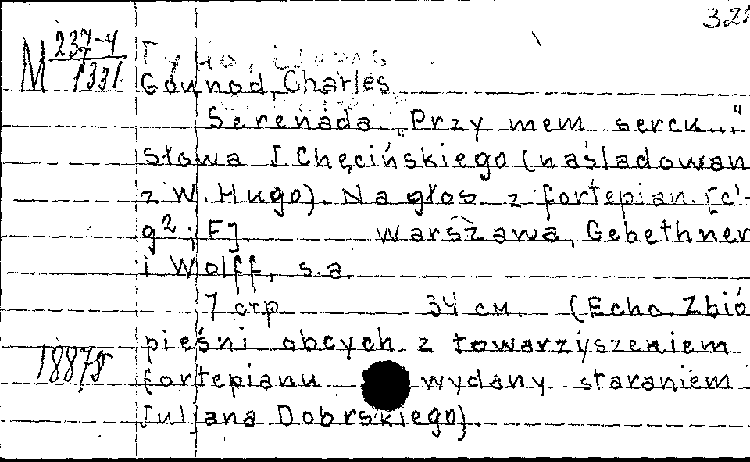 32
M 237-4
1331
Gounod, Charles
Serenada „Przy mem sercu..."
Słowa J. Chęcińskiego (naśladowan
z W. Hugo). Na głos z fortepian. [c'-
g²; F] Warszawa, Gebethner
i Wolff, s.a.
7 стр 34 см. (Echo. Zbió
pieśni obcych z towarzyszeniem
18878 fortepianu wydany staraniem
Juljana Dobrskiego).